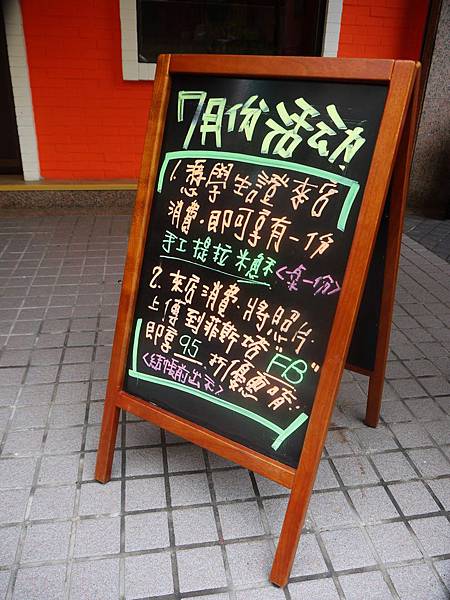 7月份活动
1.憑學生證來店
消費,即可享有一份
手工提拉米酥<桌一份>
2.來店消費,將照片
上傳到菲斯塔"FB"
即享95折優惠唷.
<結帳前出示>